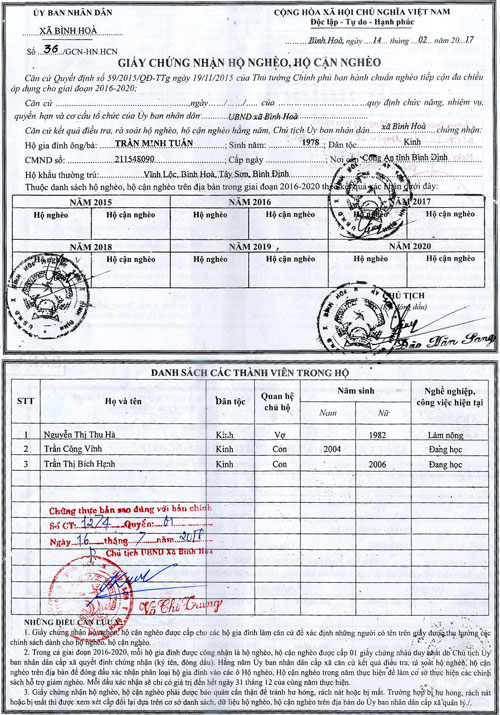 ỦY BAN NHÂN DÂN
XÃ BÌNH HOÀ
Số 36 /GCN-HN.HCN
CỘNG HÒA XÃ HỘI CHỦ NGHĨA VIỆT NAM
Độc lập - Tự do - Hạnh phúc
Bình Hoà, ngày 14 tháng 02 năm 2017
GIẤY CHỨNG NHẬN HỘ NGHÈO, HỘ CẬN NGHÈO
Căn cứ Quyết định số 59/2015/QĐ-TTg ngày 19/11/2015 của Thủ tướng Chính phủ ban hành chuẩn nghèo tiếp cận đa chiều
áp dụng cho giai đoạn 2016-2020;
Căn cứ ........ngày....../....../........ của ........ quy định chức năng, nhiệm vụ,
quyền hạn và cơ cấu tổ chức của Ủy ban nhân dân UBND xã Bình Hoà
Căn cứ kết quả điều tra, rà soát hộ nghèo, hộ cận nghèo hằng năm, Chủ tịch Ủy ban nhân dân xã Bình Hoà chứng nhận:
Hộ gia đình ông/bà: TRẦN MINH TUẤN Sinh năm: 1978 Dân tộc Kinh
CMND số: 211548090 Cấp ngày Nơi cấp Công An tỉnh Bình Định
Hộ khẩu thường trú: Vĩnh Lộc, Bình Hoà, Tây Sơn, Bình Định
Thuộc danh sách hộ nghèo, hộ cận nghèo trên địa bàn trong giai đoạn 2016-2020 theo kết quả xác nhận dưới đây:
NĂM 2015 NĂM 2016 NĂM 2017
Hộ nghèo Hộ cận nghèo Hộ nghèo Hộ cận nghèo Hộ nghèo Hộ cận nghèo
NĂM 2018 NĂM 2019 NĂM 2020
Hộ nghèo Hộ cận nghèo Hộ nghèo Hộ cận nghèo Hộ nghèo Hộ cận nghèo
CHỦ TỊCH
Đào Văn Sang
DANH SÁCH CÁC THÀNH VIÊN TRONG HỘ
STT Họ và tên Dân tộc Quan hệ chủ hộ Năm sinh Nghề nghiệp, công việc hiện tại
Nam Nữ
1 Nguyễn Thị Thu Hà Kinh Vợ 1982 Làm nông
2 Trần Công Vĩnh Kinh Con 2004 Đang học
3 Trần Thị Bích Hạnh Kinh Con 2006 Đang học
Chứng thực bản sao đúng với bản chính
Số CT: 1274 Quyển: 01
Ngày 16 tháng 7 năm 2018
Chủ tịch UBND Xã Bình Hoà
Võ Chí Trung
NHỮNG ĐIỀU CẦN LƯU Ý:
1. Giấy chứng nhận hộ nghèo, hộ cận nghèo được cấp cho các hộ gia đình làm căn cứ để xác định những người có tên trên giấy được thụ hưởng các
chính sách dành cho hộ nghèo, hộ cận nghèo.
2. Trong cả giai đoạn 2016-2020, mỗi hộ gia đình được công nhận là hộ nghèo, hộ cận nghèo được cấp 01 giấy chứng nhận duy nhất do Chủ tịch Ủy
ban nhân dân cấp xã quyết định chứng nhận (ký tên, đóng dấu). Hằng năm Ủy ban nhân dân cấp xã căn cứ kết quả điều tra, rà soát hộ nghèo, hộ cận
nghèo trên địa bàn để đóng dấu xác nhận phân loại hộ gia đình vào các ô Hộ nghèo, Hộ cận nghèo trong năm thực hiện để làm cơ sở thực hiện các chính
sách hỗ trợ giảm nghèo. Mỗi dấu xác nhận sẽ chỉ có giá trị đến hết ngày 31 tháng 12 của cùng năm thực hiện.
3. Giấy chứng nhận hộ nghèo, hộ cận nghèo phải được bảo quản cẩn thận để tránh hư hỏng, rách nát hoặc bị mất. Trường hợp bị hư hỏng, rách nát
hoặc bị mất thì được xem xét cấp đổi lại dựa trên cơ sở danh sách, dữ liệu hộ nghèo, hộ cận nghèo trên địa bàn do Ủy ban nhân dân cấp xã quản lý./.